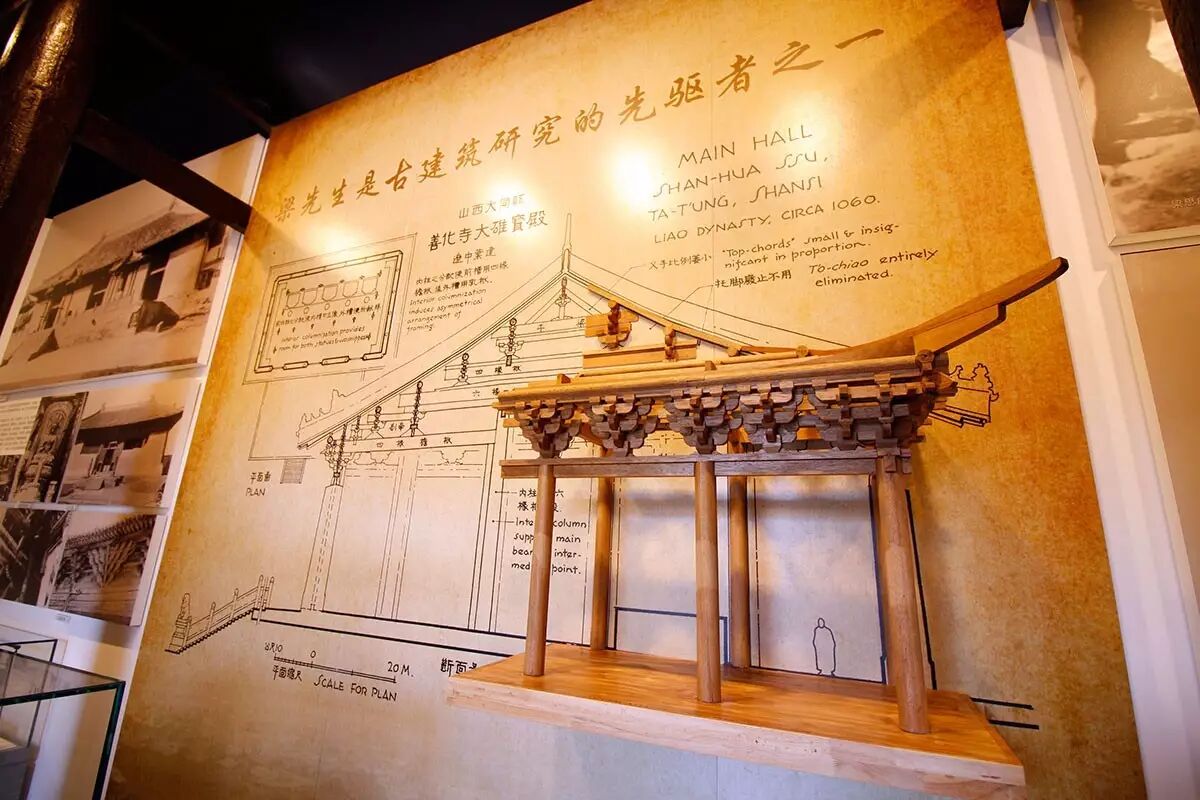 梁先生是古建筑研究的先驱者之一
山西大同縣
善化寺大雄寶殿
遼中葉建
MAIN HALL
SHAN-HUA SSU,
TA-T'UNG, SHANSI
LIAO DYNASTY, CIRCA 1060.
内柱之分配使前槽用四椽
Interior columnization
induces asymmetrical
arrangement of
framing.
Interior columnization provides
room for both statues & worshippers
叉手比例甚小
"Top-chords" small & insig-
nificant in proportion.
托脚廢止不用
To-chiao entirely
eliminated.
四椽栿
六椽
四椽
平面圖
PLAN
内柱
column
main
inter-
point.
公尺10
0
20 M.
平面縮尺
SCALE FOR PLAN
断面